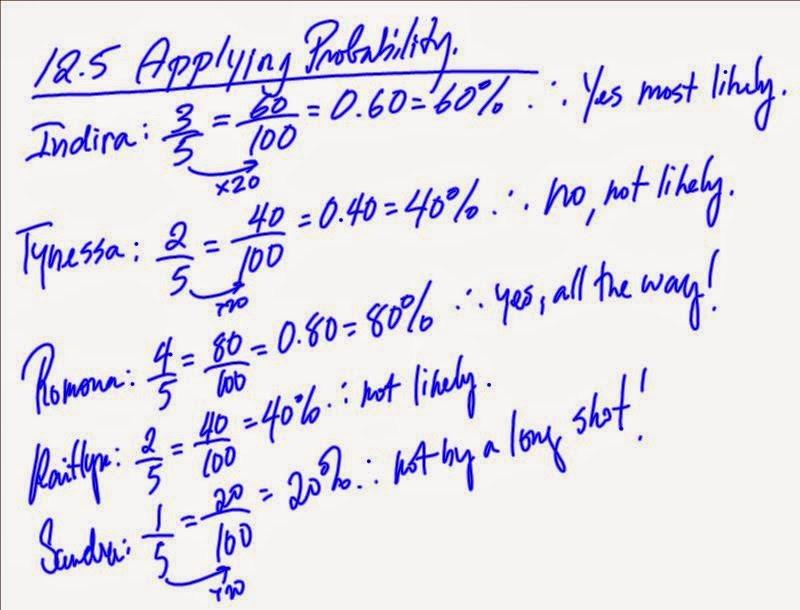 12.5 Applying Probability.
Indira: 3/5 = 60/100 = 0.60 = 60% ∴ Yes most likely.
×20
Tynessa: 2/5 = 40/100 = 0.40 = 40% ∴ no, not likely.
×20
Romona: 4/5 = 80/100 = 0.80 = 80% ∴ yes, all the way!
Kaitlyn: 2/5 = 40/100 = 40% ∴ not likely.
Sandra: 1/5 = 20/100 = 20% ∴ not by a long shot!
×20